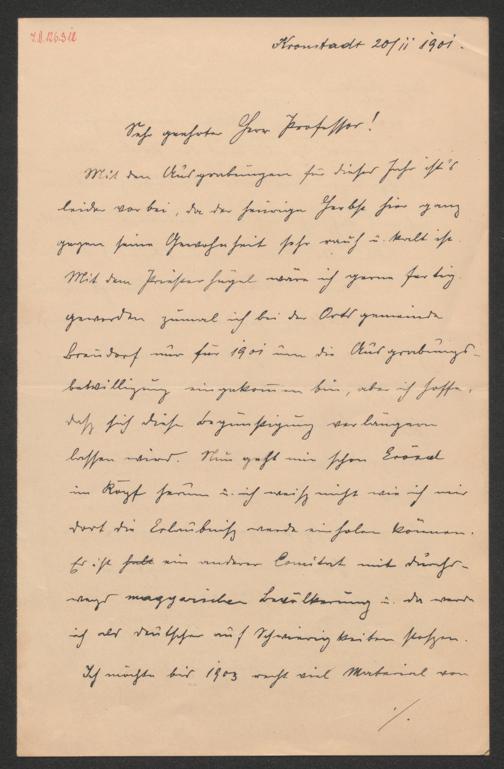 Kronstadt 20/11 1901.
Sehr geehrter Herr Professor!
Mit den Ausgrabungen für dieses Jahr ist's
leider vorbei, da der heurige Herbst hier ganz
gegen seine Gewohnheit sehr rauh u. kalt ist.
Mit dem Priesterhügel wäre ich gerne fertig
geworden zumal ich bei der Ortsgemeinde
Brenndorf nur für 1901 um die Ausgrabungs-
bewilligung eingekommen bin, aber ich hoffe,
daß sich diese Begünstigung verlängern
lassen wird. Nun geht mir schon Erösd
im Kopf herum u. ich weiß nicht wie ich mir
dort die Erlaubniß werde einholen können.
Es ist halt ein anderer Comitat mit durch-
wegs magyarischer Bevölkerung u. da werde
ich als Deutscher auf Schwierigkeiten stoßen.
Ich möchte bis 1903 recht viel Material von
./.